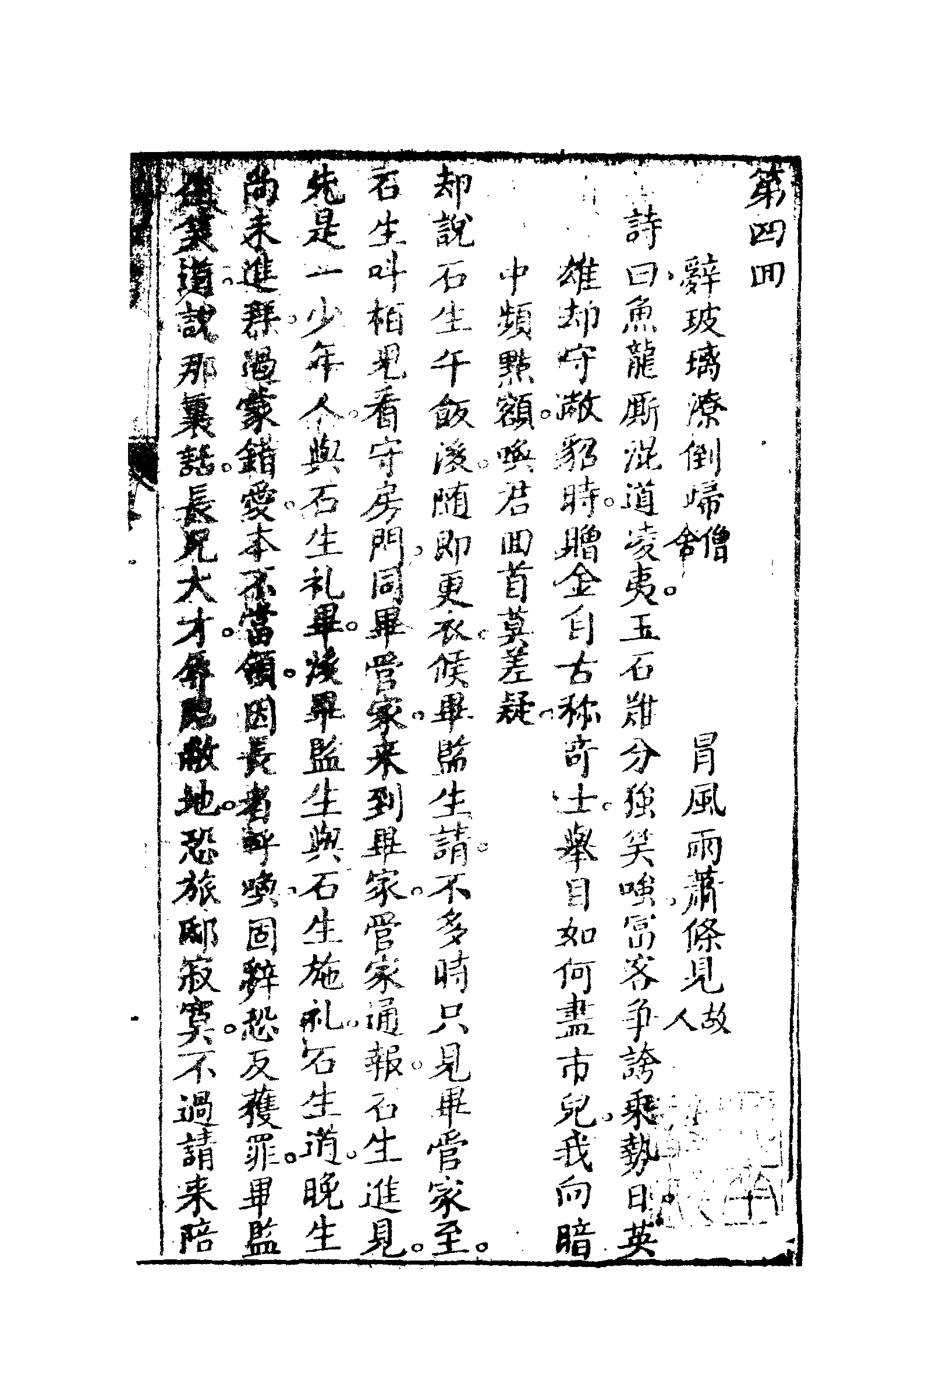 第四回
辭玻璃潦倒歸僧舍　冒風雨蕭條見故人
詩曰魚龍厮混道凌夷。玉石难分強笑嗤。富客争誇乘勢日。英
雄却守敝貂時。贈金自古称奇士。舉目如何盡市兒。我向暗
中頻點額。喚君回首莫差疑。
却說石生午飯後。随即更衣。候畢監生請。不多時只見畢管家至。
石生叫柏兒看守房門。同畢管家来到畢家。管家通報。石生進見。
先是一少年人。與石生礼畢。後畢監生與石生施礼。石生道。晚生
尚未進群。過蒙錯愛。本不當領。因長者呼喚。固辭恐反獲罪。畢監
生笑道。說那裏話。長兄大才。辱臨敝地。恐旅邸寂寞。不過請来陪